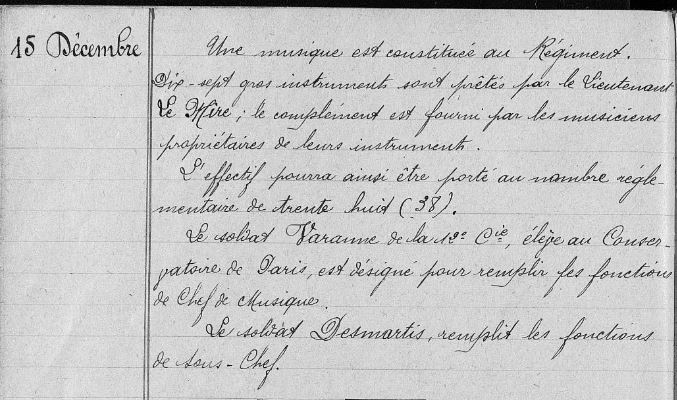 15 Décembre
Une musique est constituée au Régiment.
Dix-sept gros instruments sont prêtés par le Lieutenant
Le Mire; le complément est fourni par les musiciens
propriétaires de leurs instruments.
L'effectif pourra ainsi être porté au nombre régle-
mentaire de trente huit (38).
Le soldat Varanne de la 19e Cie, élève au Conser-
vatoire de Paris, est désigné pour remplir les fonctions
de Chef de Musique.
Le soldat Desmartis, remplit les fonctions
de sous-Chef.